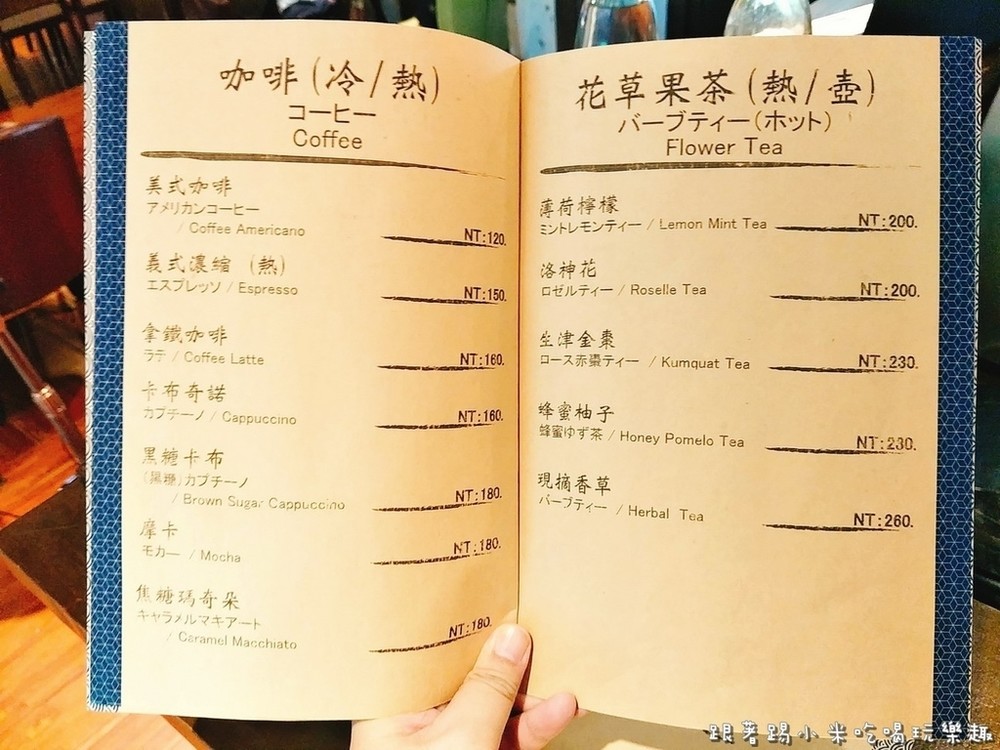 咖啡(冷/熱)
コーヒー
Coffee
美式咖啡
アメリカンコーヒー
/ Coffee Americano
NT:120.
義式濃縮 (熱)
エスプレッソ / Espresso
NT:150.
拿鐵咖啡
ラテ / Coffee Latte
NT:160.
卡布奇諾
カプチーノ / Cappuccino
NT:160.
黑糖卡布
(黒糖)カプチーノ
/ Brown Sugar Cappuccino
NT:180.
摩卡
モカー / Mocha
NT:180.
焦糖瑪奇朵
キャラメルマキアート
/ Caramel Macchiato
NT:180.
花草果茶(熱/壺)
バーブティー(ホット)
Flower Tea
薄荷檸檬
ミントレモンティー / Lemon Mint Tea
NT:200.
洛神花
ロゼルティー / Roselle Tea
NT:200.
生津金棗
ロース赤棗ティー / Kumquat Tea
NT:230.
蜂蜜柚子
蜂蜜ゆず茶 / Honey Pomelo Tea
NT:230.
現摘香草
バーブティー / Herbal Tea
NT:260.
跟著踢小米吃喝玩樂趣